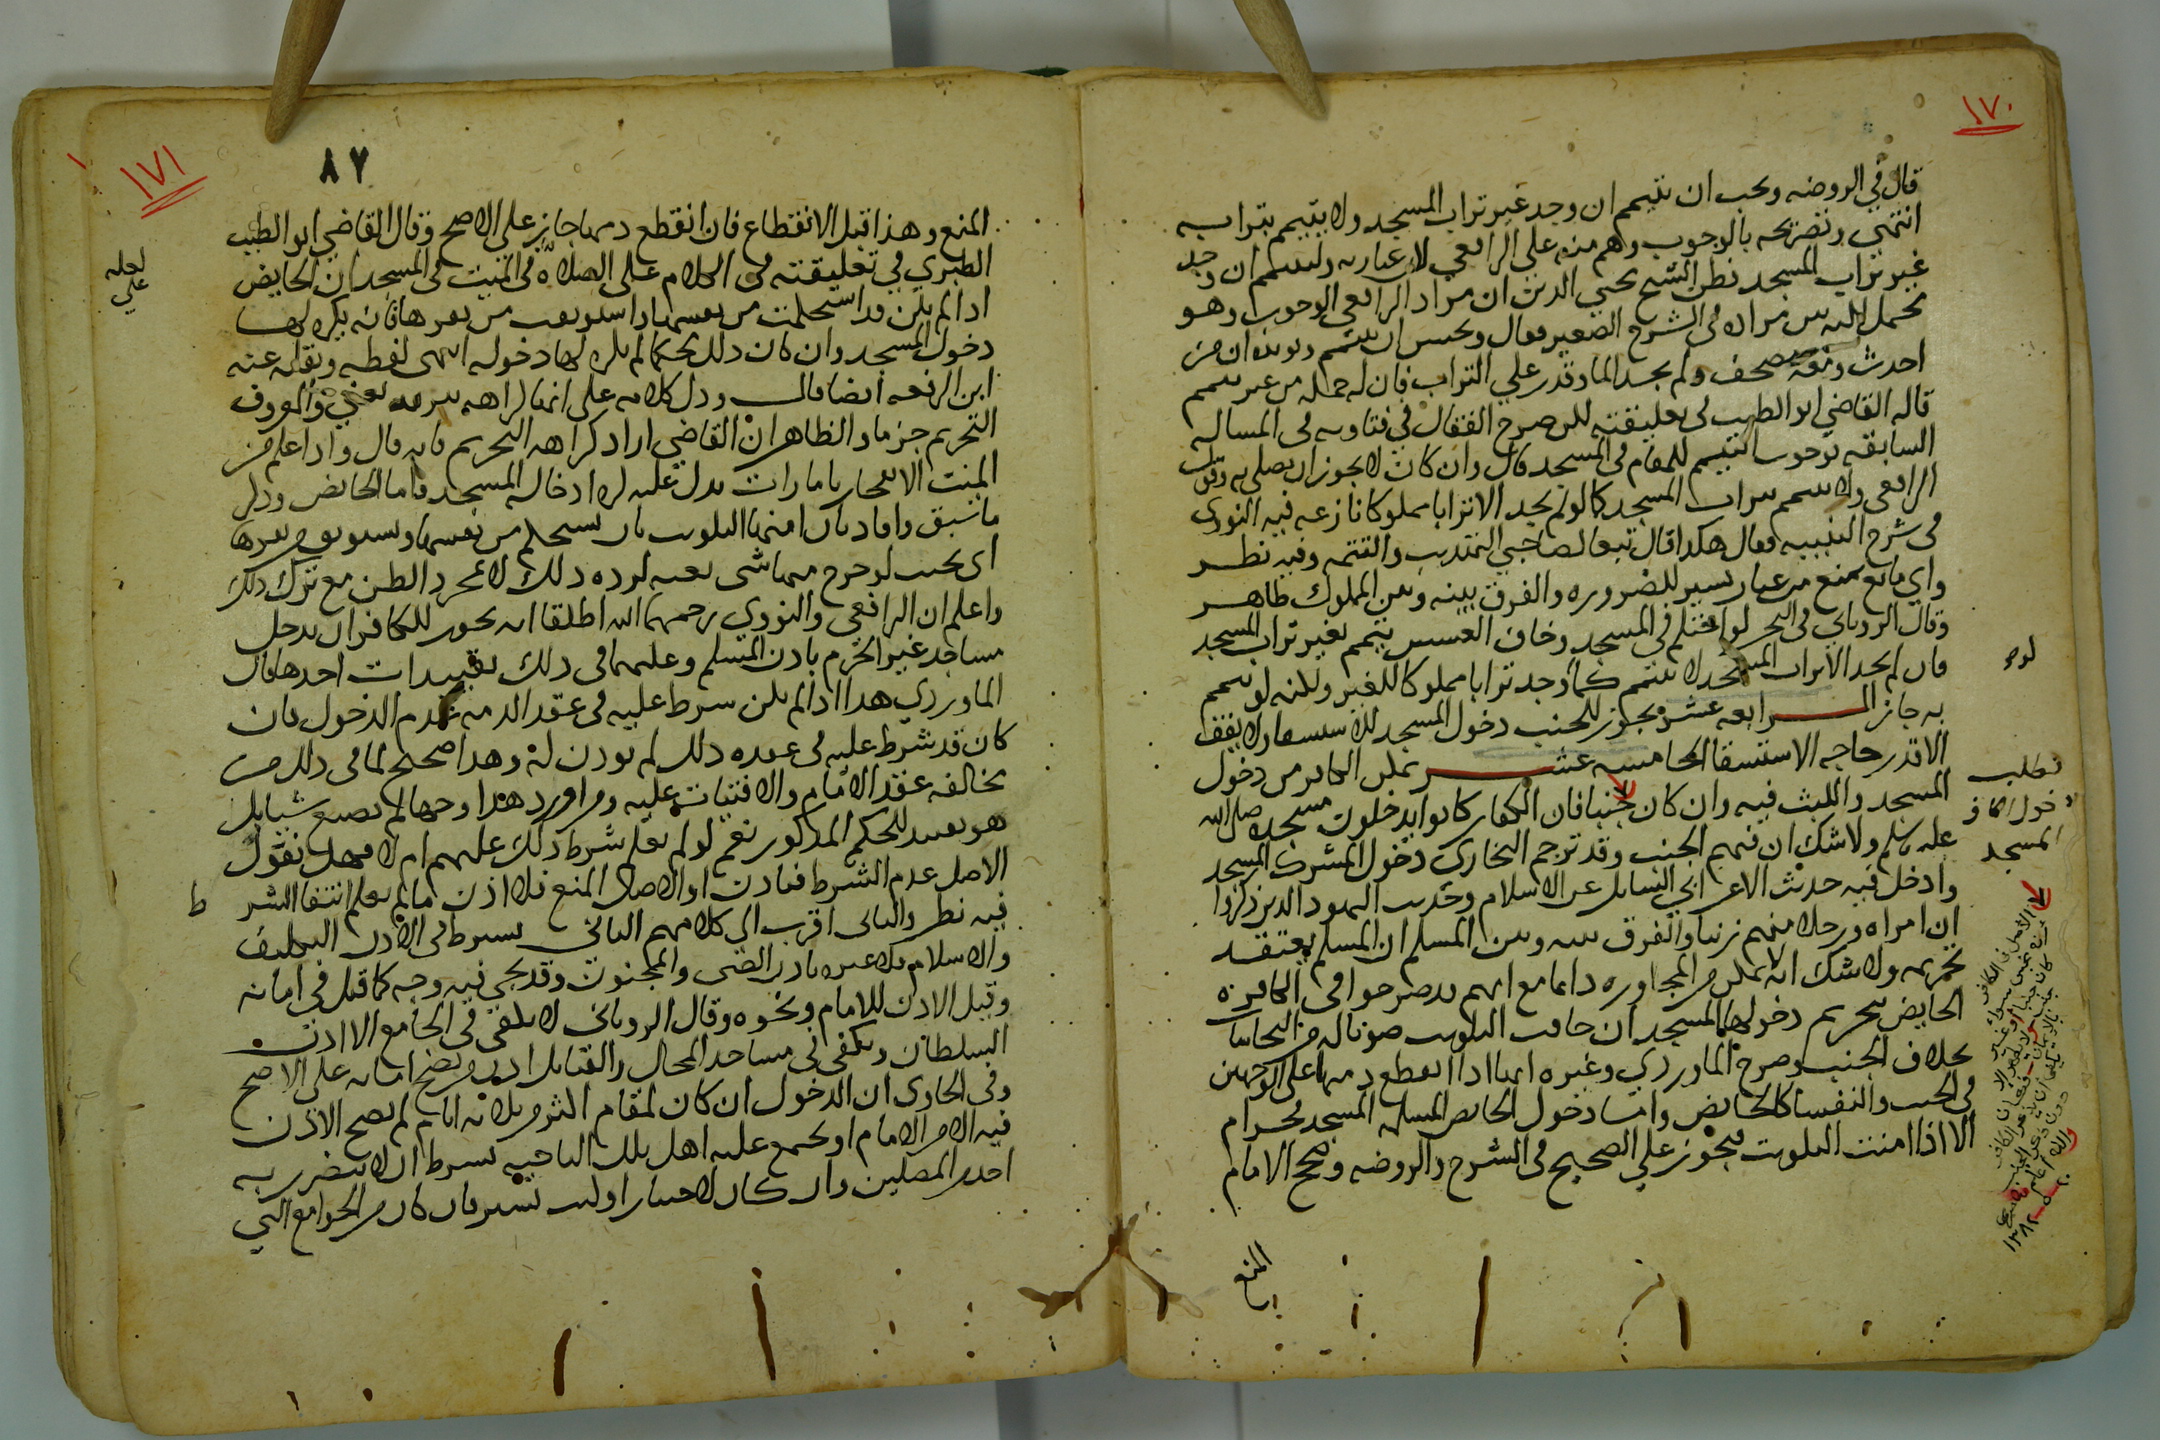 ١٧٠
قال في الروضه ويجب ان يتيمم ان وجد غير تراب المسجد ولا يتيمم بترابه
انتهي وتصريحه بالوجوب وهم منه علي الرافعي لان عبارته وليتيمم ان وجد
غير تراب المسجد نظن الشيخ محيي الدين ان مراد الرافعي الوجوب وهو
محتمل مراده في الشرح الصغير فقال ويحسن ان يتيمم ان من
احدث ومعه مصحف ولم يجد الما وقدر علي التراب فان له حمله من غير تيمم
قاله القاضي ابو الطيب في تعليقته صرح القفال في فتاويه في المساله
السابقه بوجوب التيمم للمقام في المسجد قال وان كان لا يجوز ان يصلي به وقول
الرافعي ولا يتيمم بتراب المسجد كما لو لم يجد الا ترابا مملوكا نازعه فيه النووي
في شرح التنبيه فقال هكذا قال تبعا لصاحبي التهذيب والتتمه وفيه نظر
واي مانع يمنع من غبار يسير للضروره والفرق بينه وبين المملوك ظاهر
وقال الروياني في البحر لو احتلم في المسجد وخاف العسس يتيمم بغير تراب المسجد
فان لم يجد الا تراب المسجد لا يتيمم كما لو وجد ترابا مملوكا للغير ولكنه لو تيمم
به جاز الرابعه عشر يجوز للجنب دخول المسجد للاستسقا ولا يقف
الا قدر حاجه الاستسقا الخامسه عشر يمكن الكافر من دخول
المسجد واللبث فيه وان كان جنبا فان الكفار كانوا يدخلون مسجده صلي الله
عليه وسلم ولا شك ان فيهم الجنب وقد ترجم البخاري دخول المشرك المسجد
وادخل فيه حديث الاعرابي السايل عن الاسلام وحديث اليهود الذين ذكروا
ان امراه ورجلا منهم زنيا والفرق بينه وبين المسلم ان المسلم يعتقد
تحريمه ولا شك انه لا يمكن من المجاوره دايما مع انهم قد صرحوا في الكافره
الحايض بتحريم دخولها المسجد ان خافت التلويث صونا له من النجاسات
بخلاف الجنب وصرح الماوردي وغيره انها اذا انقطع دمها علي الوجهين
في الجنب والنفسا كالحايض واما دخول الحايض المسلمه المسجد محرام
الا اذا امنت التلويث فيجوز علي الصحيح في الشرح والروضه وصحح الامام
المنع
مطلب
دخول الكافر
المسجد
١٧١
٨٧
المنع وهذا قبل الانقطاع فان انقطع دمها جاز علي الاصح وقال القاضي ابو الطيب
الطبري في تعليقته في الكلام علي الصلاه في البيت في المسجد ان الحايض
اذا لم تكن قد استحكمت من نفسها واستوثقت من ثفرها فانه يكره لها
دخول المسجد وان كان ذلك محكما لم يكره لها دخوله انتهى لفظه ونقله عنه
ابن الرفعه ايضا قال ودل كلامه علي انها كراهه تنزيه يعني والمعروف
التحريم جزما والظاهر ان القاضي اراد كراهه التحريم فانه قال واذا علم من
الميت الانفجار بامارات يدل عليه كره ادخاله المسجد فاما الحايض وذكر
ما سبق وافاد بان امنها التلويث بان تستحكم من نفسها وتستوثق من ثفرها
اي بحيث لو خرج منها شي لرده ذلك لا بمجرد الظن مع ترك ذلك
واعلم ان الرافعي والنووي رحمهما الله اطلقا انه يجوز للكافر ان يدخل
مساجد غير الحرم باذن المسلم وعليهما في ذلك تقييدات احدها قال
الماوردي هذا اذا لم يكن شرط عليه في عقد الذمه عدم الدخول فان
كان قد شرط عليه في عقده ذلك لم يوذن له وهذا صحيح لما في ذلك من
مخالفه عقد الامام والافتيات عليه ومن اورد هذا وجها لم يصنع شيا بل
هو تقييد للحكم المذكور نعم لو لم يعلم شرط ذلك عليهم ام لا فهل نقول
الاصل عدم الشرط فياذن او الاصل المنع فلا اذن ما لم يعلم انتفا الشرط
فيه نظر والثاني اقرب الي كلامهم الثاني يشترط في الاذن التكليف
والاسلام فلا عبره باذن الصبي والمجنون وقد يجي فيه وجه كما قيل في امانه
وقيل الاذن للامام ونحوه وقال الروياني لا يكفي في الجامع الا اذن
السلطان ويكفي في مساجد المحال والقبايل اذن من يصح امانه علي الاصح
وفي الحاوي ان الدخول ان كان لمقام اكثر من ثلاثه ايام لم يصح الاذن
فيه الا من الامام او يجتمع عليه اهل تلك الناحيه بشرط ان لا يتضرر به
احد من المصلين وان كان لاجتياز او لبث يسير فان كان من الجوامع التي
لعله
علي